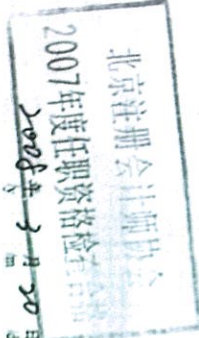 北京注册会计师协会
2007年度任职资格检查
2008年3月30日